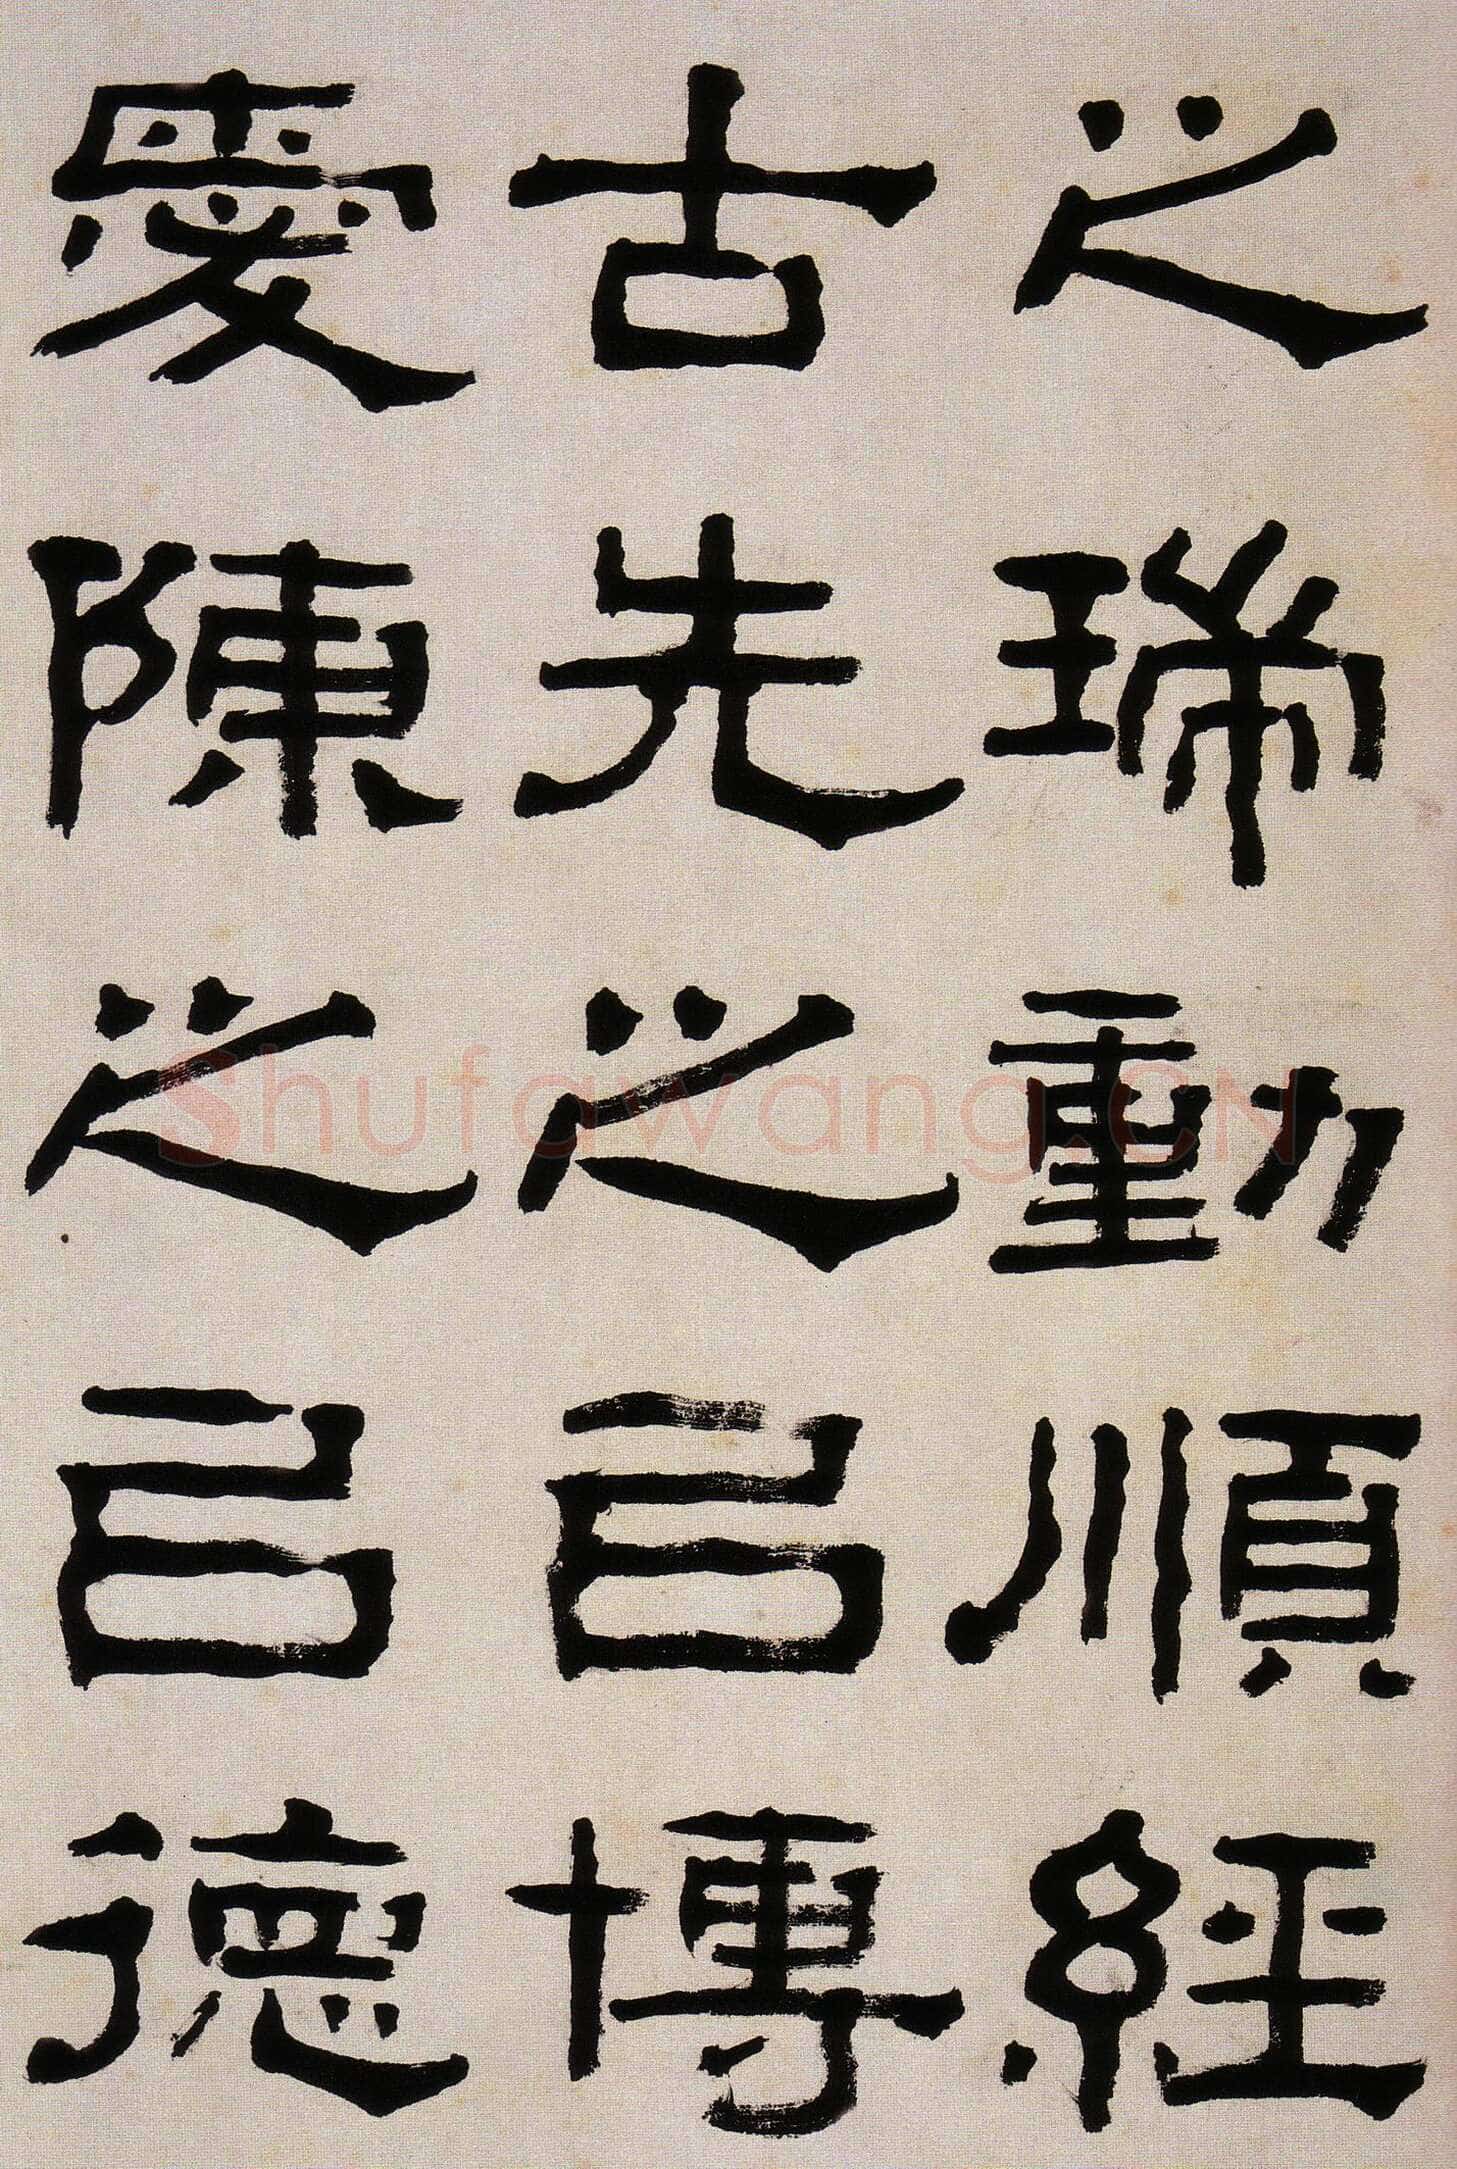 之瑞動順經
古先之㠯博
愛陳之㠯德
Shufawang.CN